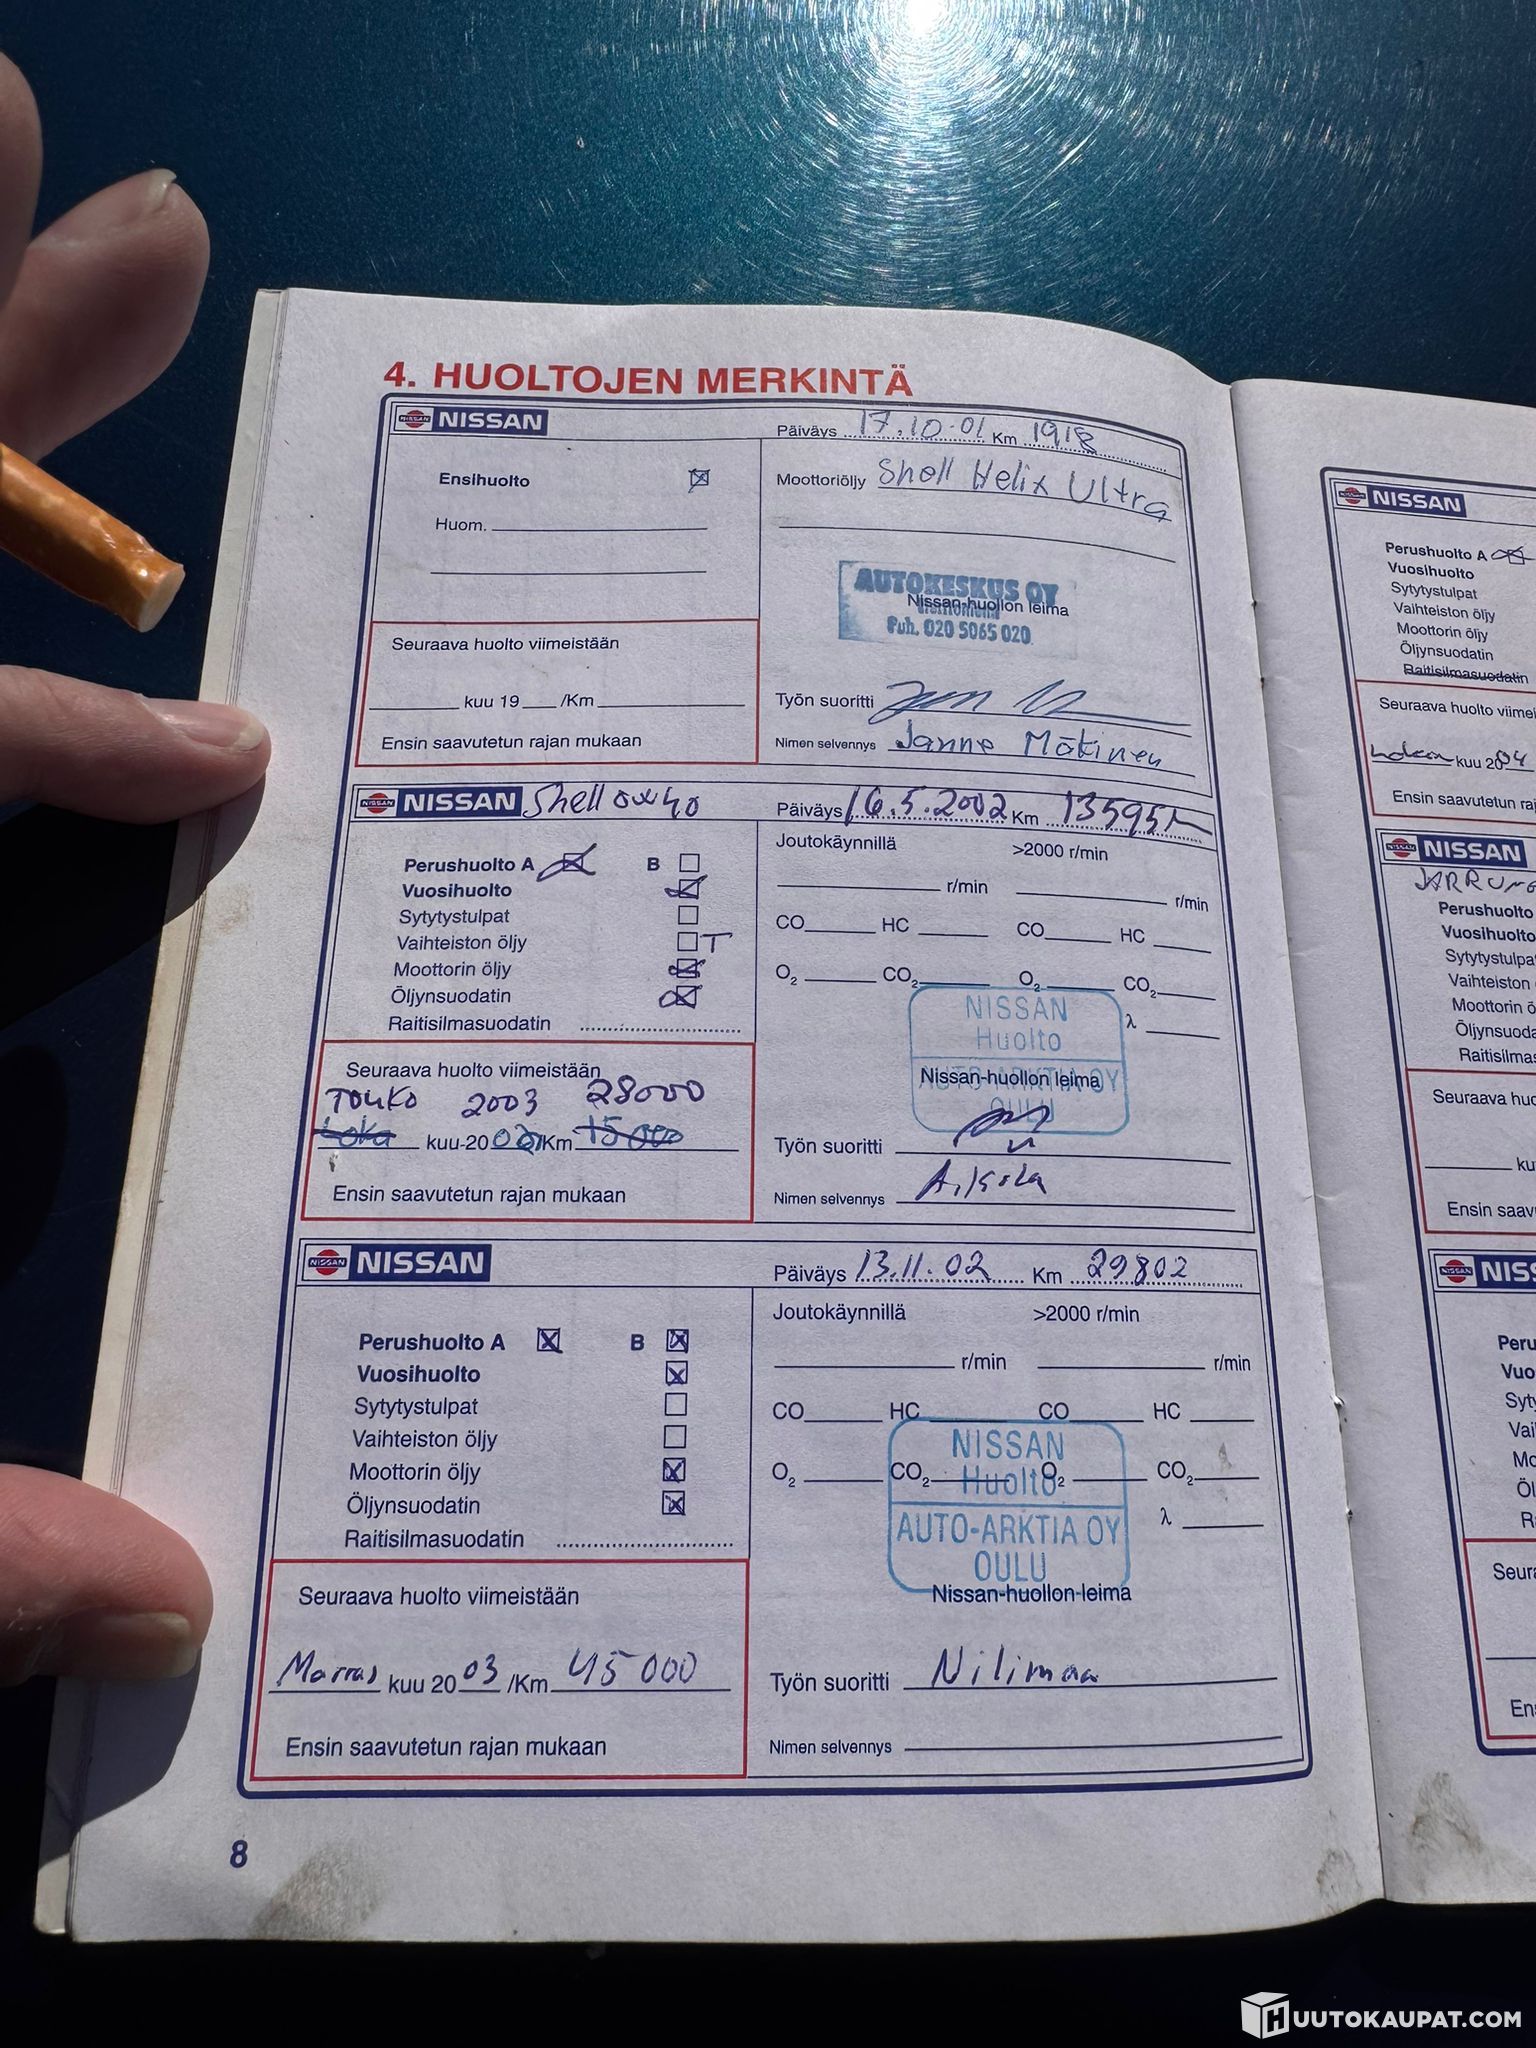 4. HUOLTOJEN MERKINTÄ
NISSAN
Päiväys 17.10.01 Km 1918
Ensihuolto
Moottoriöljy Shell Helix Ultra
Huom.
AUTOKESKUS OY
Nissan-huollon leima
Puh. 020 5065 020
Seuraava huolto viimeistään
kuu 19 /Km
Ensin saavutetun rajan mukaan
Työn suoritti
Nimen selvennys Janne Mäkinen
NISSAN Shell 0w40
Päiväys 16.5.2002 Km 13595
Perushuolto A B
Vuosihuolto
Sytytystulpat
Vaihteiston öljy T
Moottorin öljy
Öljynsuodatin
Raitisilmasuodatin
Joutokäynnillä >2000 r/min
r/min r/min
CO HC CO HC
O₂ CO₂ O₂ CO₂
λ
NISSAN
Huolto
AUTO-ARKTIA OY
OULU
Nissan-huollon leima
Seuraava huolto viimeistään
Touko 2003 28000
Loka kuu 20 02/Km 15000
Ensin saavutetun rajan mukaan
Työn suoritti
Nimen selvennys
NISSAN
Päiväys 13.11.02 Km 29802
Perushuolto A B
Vuosihuolto
Sytytystulpat
Vaihteiston öljy
Moottorin öljy
Öljynsuodatin
Raitisilmasuodatin
Joutokäynnillä >2000 r/min
r/min r/min
CO HC CO HC
O₂ CO₂ O₂ CO₂
λ
NISSAN
Huolto
AUTO-ARKTIA OY
OULU
Nissan-huollon leima
Seuraava huolto viimeistään
Marras kuu 20 03 /Km 45 000
Ensin saavutetun rajan mukaan
Työn suoritti Nilimaa
Nimen selvennys
8
NISSAN
Perushuolto A
Vuosihuolto
Sytytystulpat
Vaihteiston öljy
Moottorin öljy
Öljynsuodatin
Raitisilmasuodatin
Seuraava huolto
kuu 20 04
Ensin saavutetun
NISSAN
Perushuolto
Vuosihuolto
Vaihteiston
Öljynsuodatin
Ensin
HUUTOKAUPAT.COM